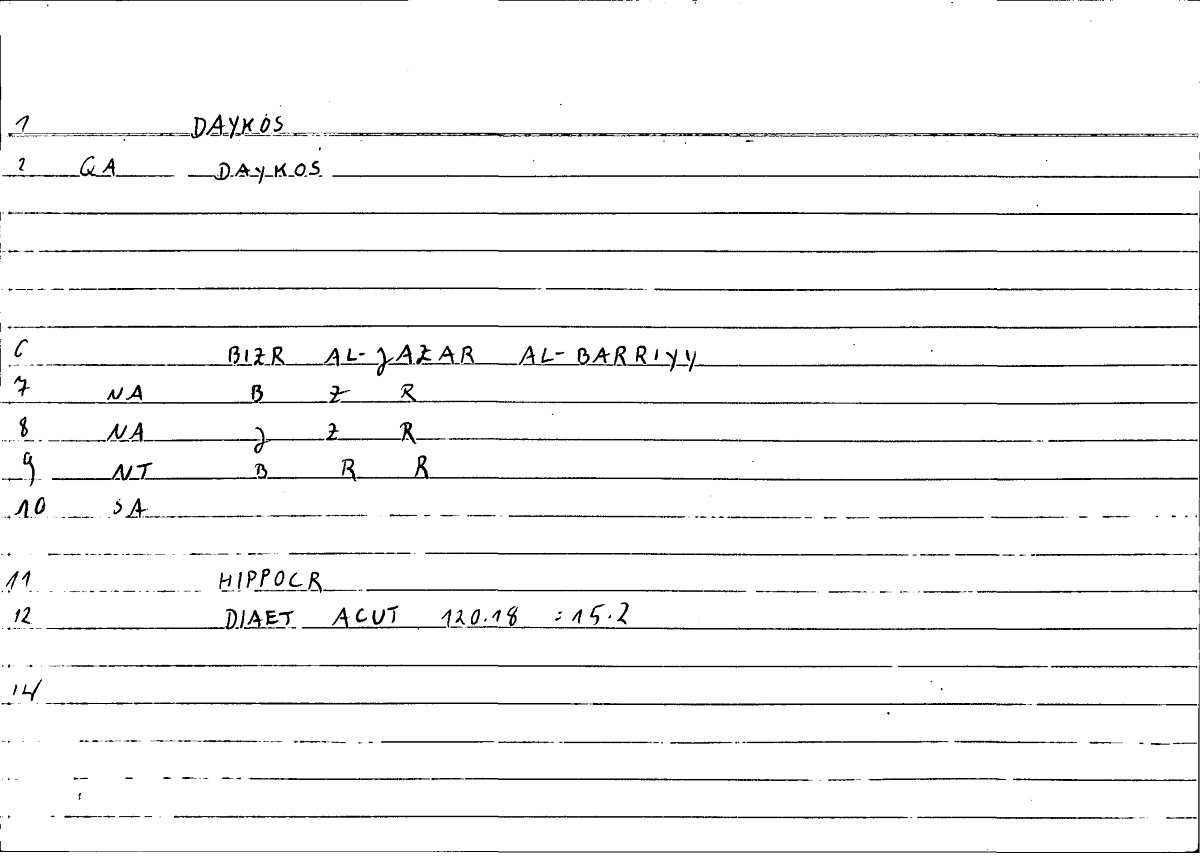 1 DAYKOS
2 QA DAYKOS
6 BIZR AL-JAZAR AL-BARRIYY
7 NA B Z R
8 NA J Z R
9 NT B R R
10 SA
11 HIPPOCR
12 DIAET ACUT 120.18 :15.2
14